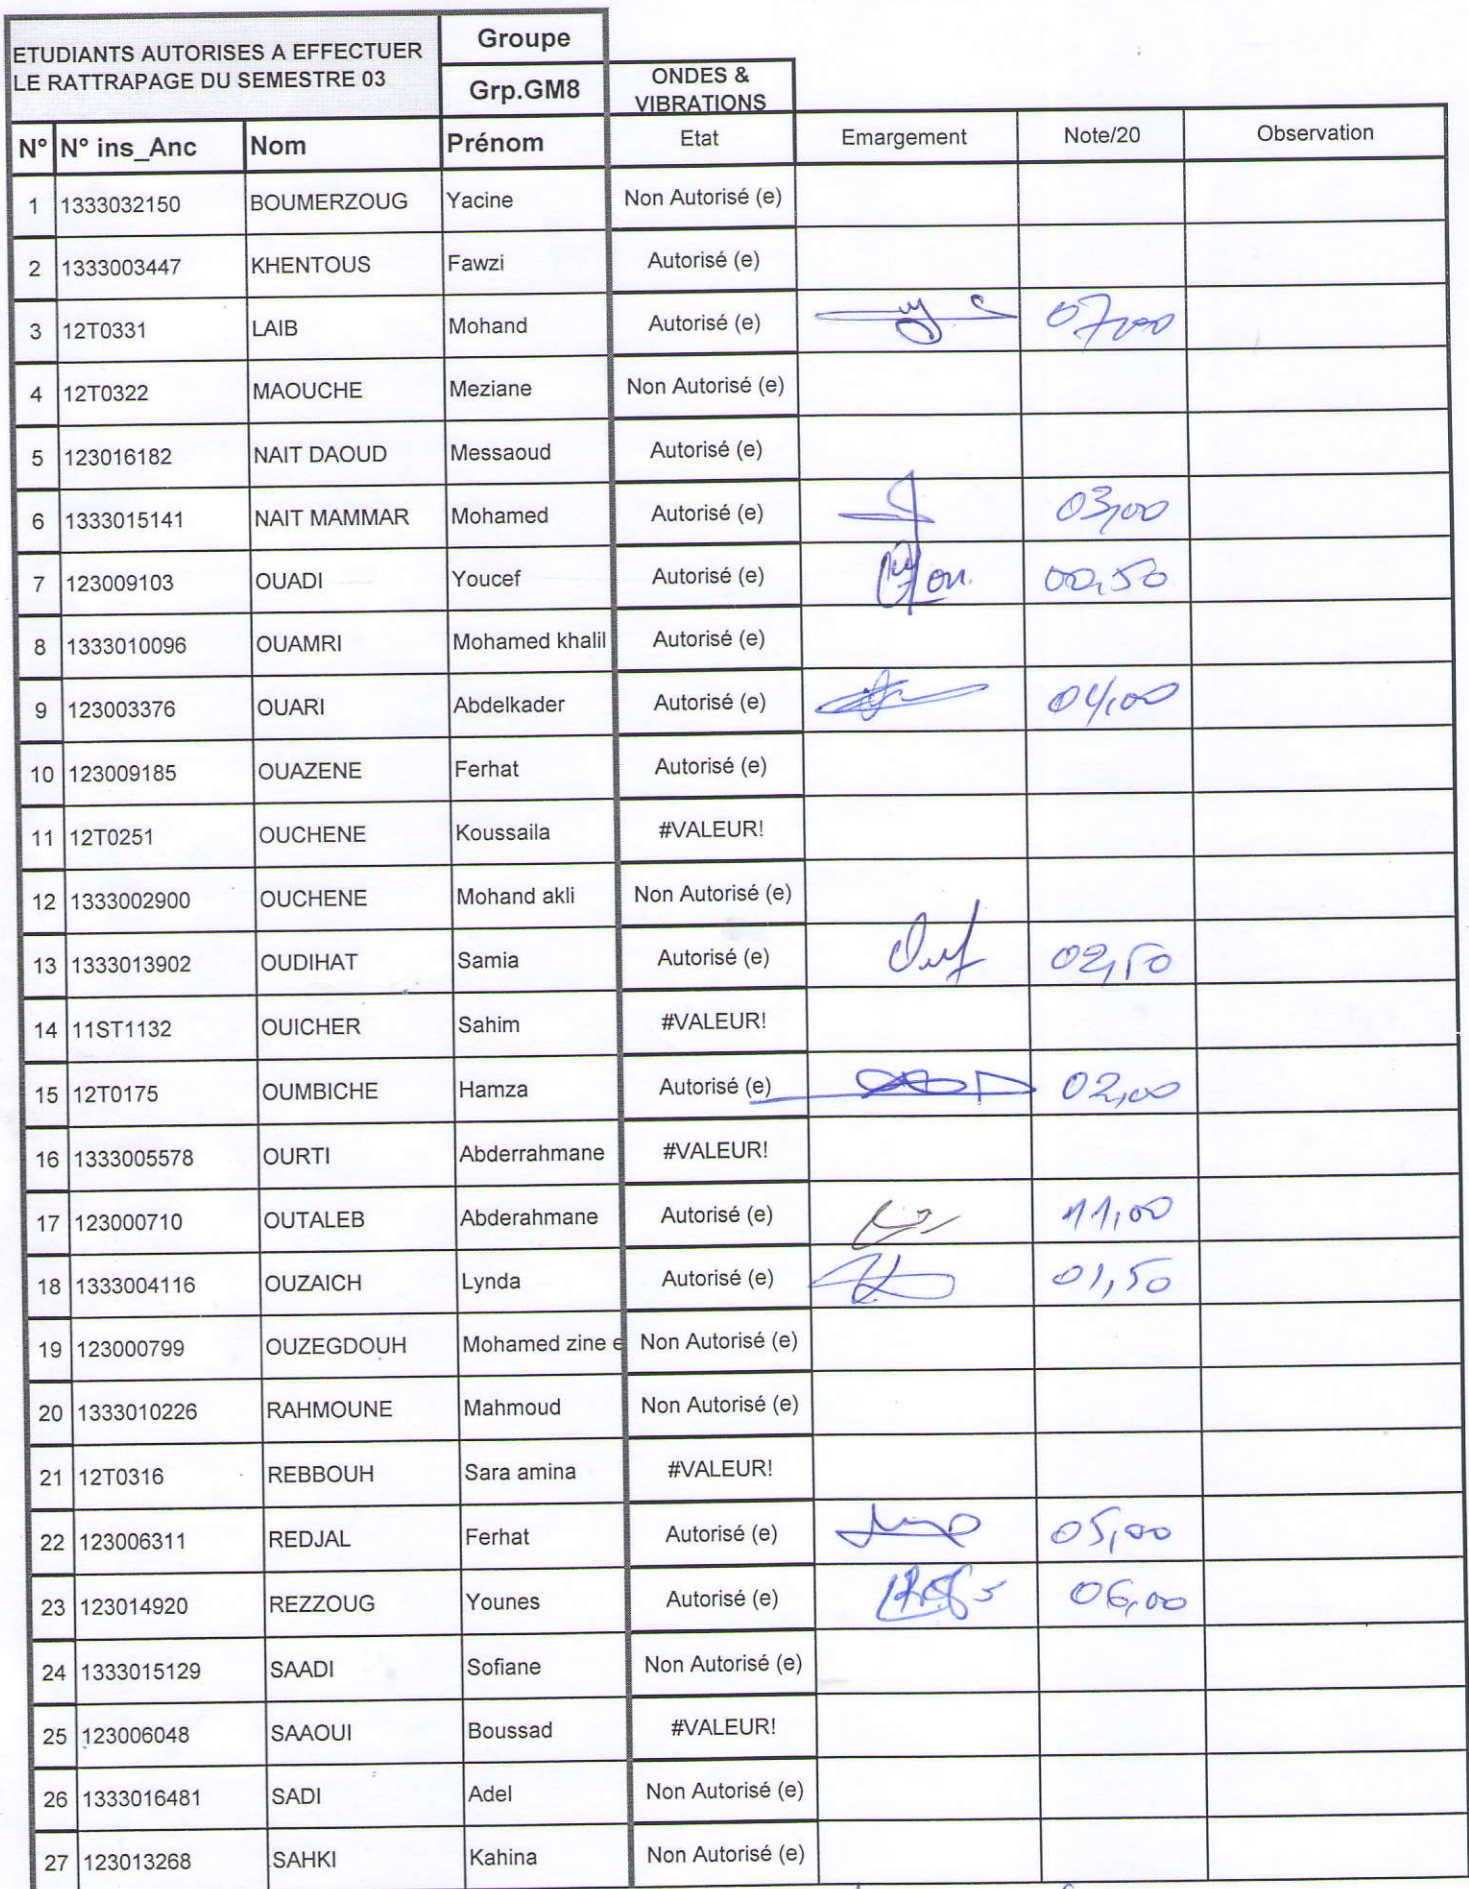 ETUDIANTS AUTORISES A EFFECTUER LE RATTRAPAGE DU SEMESTRE 03
Groupe
Grp.GM8
ONDES & VIBRATIONS
N° N° ins_Anc Nom Prénom Etat Emargement Note/20 Observation
1 1333032150 BOUMERZOUG Yacine Non Autorisé (e)
2 1333003447 KHENTOUS Fawzi Autorisé (e)
3 12T0331 LAIB Mohand Autorisé (e) 07,00
4 12T0322 MAOUCHE Meziane Non Autorisé (e)
5 123016182 NAIT DAOUD Messaoud Autorisé (e)
6 1333015141 NAIT MAMMAR Mohamed Autorisé (e) 03,00
7 123009103 OUADI Youcef Autorisé (e) 00,50
8 1333010096 OUAMRI Mohamed khalil Autorisé (e)
9 123003376 OUARI Abdelkader Autorisé (e) 04,00
10 123009185 OUAZENE Ferhat Autorisé (e)
11 12T0251 OUCHENE Koussaila #VALEUR!
12 1333002900 OUCHENE Mohand akli Non Autorisé (e)
13 1333013902 OUDIHAT Samia Autorisé (e) 02,50
14 11ST1132 OUICHER Sahim #VALEUR!
15 12T0175 OUMBICHE Hamza Autorisé (e) 02,00
16 1333005578 OURTI Abderrahmane #VALEUR!
17 123000710 OUTALEB Abderahmane Autorisé (e) 11,00
18 1333004116 OUZAICH Lynda Autorisé (e) 01,50
19 123000799 OUZEGDOUH Mohamed zine e Non Autorisé (e)
20 1333010226 RAHMOUNE Mahmoud Non Autorisé (e)
21 12T0316 REBBOUH Sara amina #VALEUR!
22 123006311 REDJAL Ferhat Autorisé (e) 05,00
23 123014920 REZZOUG Younes Autorisé (e) 06,00
24 1333015129 SAADI Sofiane Non Autorisé (e)
25 123006048 SAAOUI Boussad #VALEUR!
26 1333016481 SADI Adel Non Autorisé (e)
27 123013268 SAHKI Kahina Non Autorisé (e)